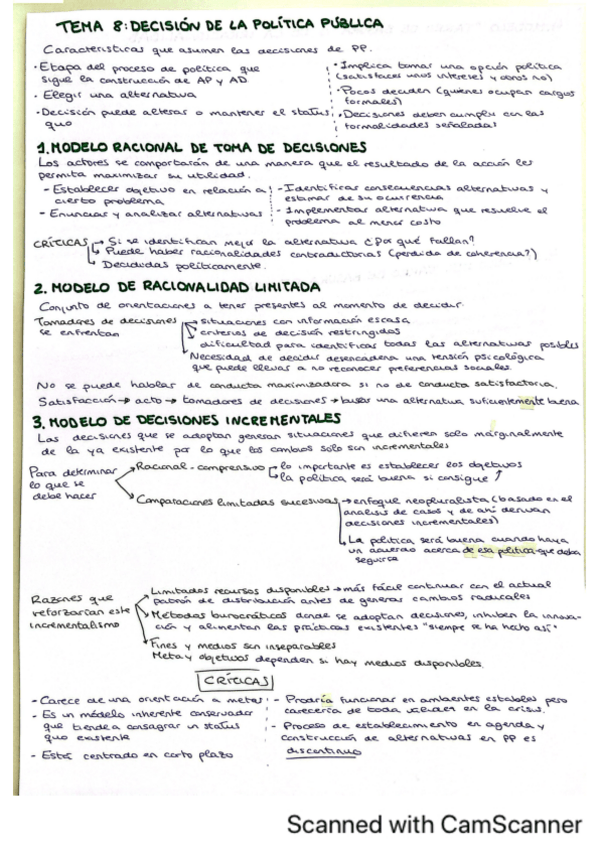 TEMA 8: DECISIÓN DE LA POLÍTICA PÚBLICA
Características que asumen las decisiones de PP.
· Etapa del proceso de política que
sigue la construcción de AP y AD
· Elegir una alternativa
· Decisión puede alterar o mantener el status
quo
· Implica tomar una opción política
(satisfaces unos intereses y otros no)
· Pocos deciden (quienes ocupan cargos
formales)
· Decisiones deben cumplir con las
formalidades señaladas
1. MODELO RACIONAL DE TOMA DE DECISIONES
Los actores se comportarán de una manera que el resultado de la acción les
permita maximizar su utilidad.
- Establecer objetivo en relación a
cierto problema
- Enunciar y analizar alternativas
- Identificar consecuencias alternativas y
estimar de su ocurrencia
- Implementar alternativa que resuelve el
problema al menor costo
CRÍTICAS → Si se identifican mejor la alternativa ¿Por qué fallan?
↳ Puede haber racionalidades contradictorias (perdida de coherencia?)
↳ Decididas políticamente.
2. MODELO DE RACIONALIDAD LIMITADA
Conjunto de orientaciones a tener presentes al momento de decidir.
Tomadores de decisiones
se enfrentan
→ situaciones con información escasa
criterios de decisión restringidos
dificultad para identificar todas las alternativas posibles
Necesidad de decidir desencadena una tensión psicológica
que puede llevar a no reconocer preferencias sociales.
No se puede hablar de conducta maximizadora si no de conducta satisfactoria.
Satisfacción → acto → tomadores de decisiones → buscar una alternativa suficientemente buena
3. MODELO DE DECISIONES INCREMENTALES
Las decisiones que se adoptan generan situaciones que difieren solo marginalmente
de la ya existente por lo que los cambios solo son incrementales
Para determinar
lo que se
debe hacer
→ Racional-comprensivo → lo importante es establecer los objetivos
↳ la política será buena si consigue ↑
→ Comparaciones limitadas sucesivas → enfoque neopluralista (basado en el
analisis de casos y de ahí derivan
decisiones incrementales)
↳ La política será buena cuando haya
un acuerdo acerca de esa política que deba
seguirse
Razones que
reforzarían este
incrementalismo
→ Limitados recursos disponibles → más fácil continuar con el actual
patrón de distribución antes de generar cambios radicales
→ Métodos burocráticos donde se adoptan decisiones, inhiben la innova-
ción y alimentan las prácticas existentes "siempre se ha hecho así"
→ Fines y medios son inseparables
Meta y objetivos dependen si hay medios disponibles.
CRÍTICAS
- Carece de una orientación a metas
- Es un módelo inherente conservador
que tiende a consagrar un status
quo existente
- Está centrado en corto plazo
- Prodría funcionar en ambientes estables pero
carecería de toda validez en la crisis.
- Proceso de establecimiento en agenda y
construcción de alternativas en PP es
discontinuo
Scanned with CamScanner